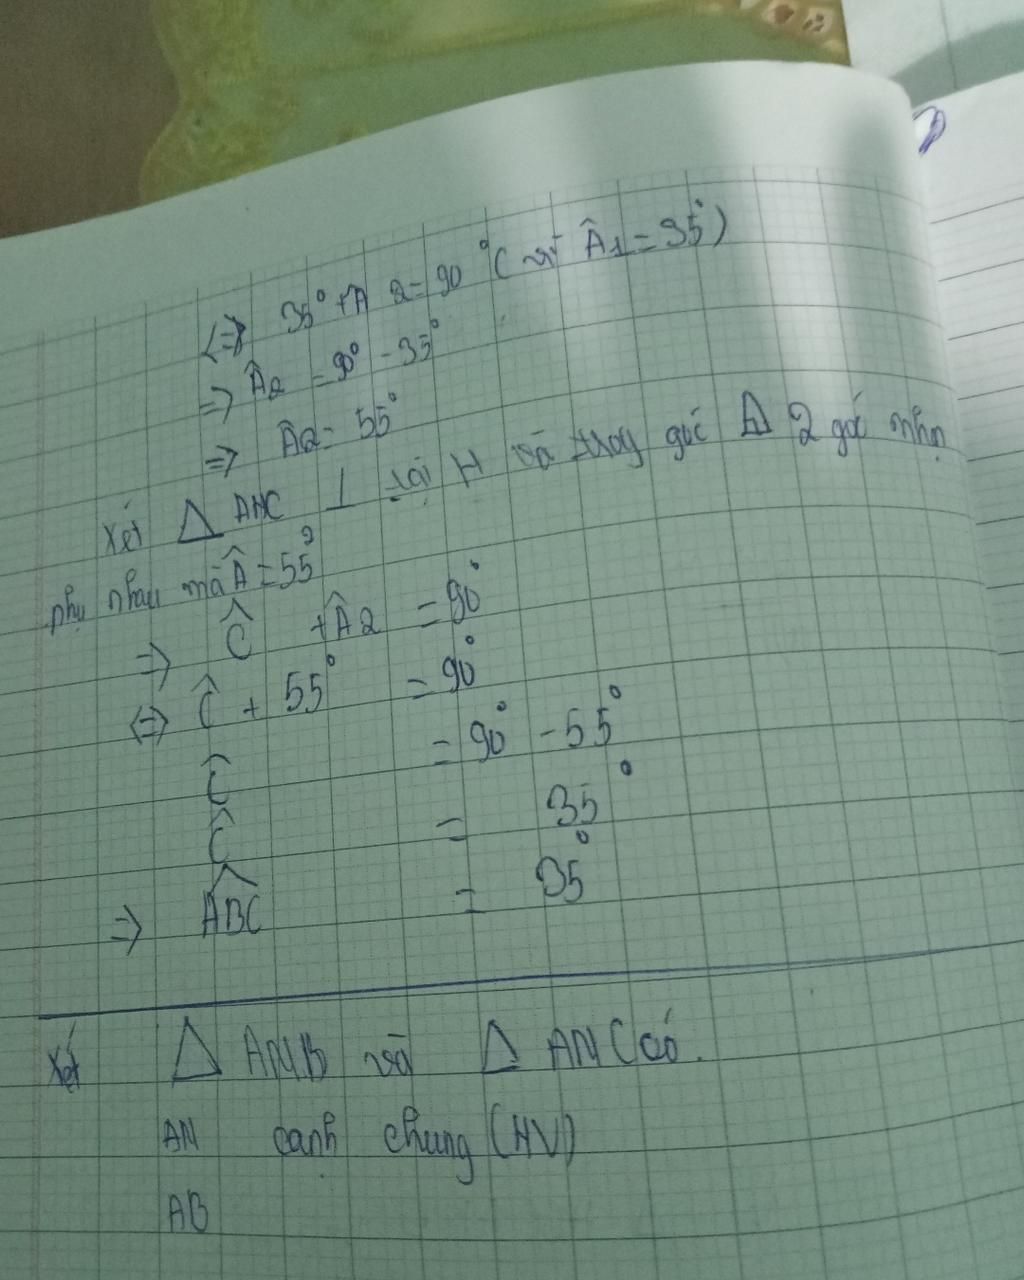 <=> 35° + A 2 = 90° ( vì Â1 = 35°)
=> Â2 = 90° - 35°
=> Â2 = 55°
Xét △ AHC ⊥ tại H và góc 2 góc nhọn
phụ nhau mà Â = 55°
=> Ĉ + Â2 = 90°
<=> Ĉ + 55° = 90°
Ĉ = 90° - 55°
Ĉ = 35°
=> ABC = 35°
Xét △ ANB và △ ANC có.
AN cạnh chung (HV)
AB